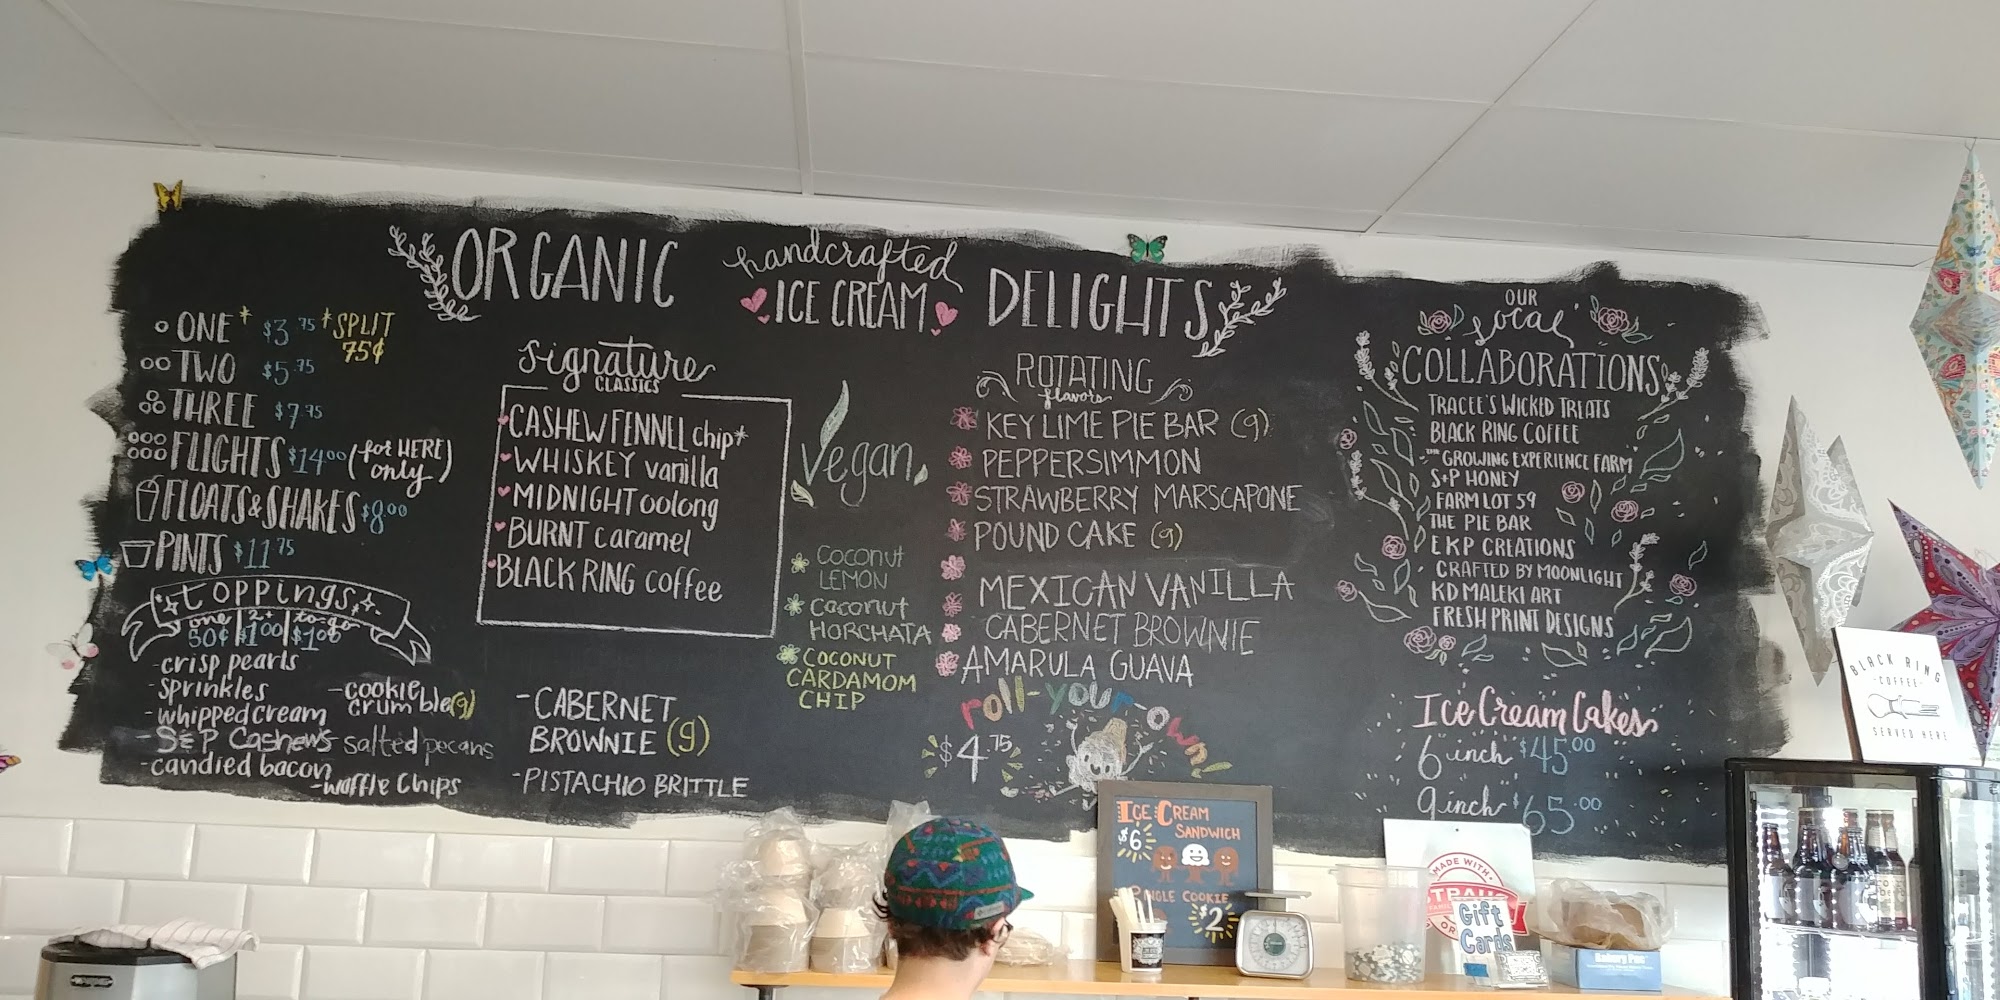 ORGANIC handcrafted ICE CREAM DELIGHTS
ONE* $3.75 *SPLIT 75¢
TWO $5.75
THREE $7.75
FLIGHTS $14.00 (for HERE only)
FLOATS & SHAKES $8.00
PINTS $11.75
toppings
one 2+ to-go
50¢ $1.00 $1.00
-crisp pearls
-sprinkles
-whipped cream
-S&P Cashews
-candied bacon
-cookie crumble (g)
salted pecans
-waffle chips
Signature
CLASSICS
CASHEW FENNEL chip*
WHISKEY vanilla
MIDNIGHT oolong
BURNT caramel
BLACK RING coffee
-CABERNET
BROWNIE (g)
-PISTACHIO BRITTLE
Vegan
Coconut
LEMON
Coconut
HORCHATA
COCONUT
CARDAMOM
CHIP
ROTATING
flavors
KEY LIME PIE BAR (g)
PEPPERSIMMON
STRAWBERRY MARSCAPONE
POUND CAKE (g)
MEXICAN VANILLA
CABERNET BROWNIE
AMARULA GUAVA
roll-your-own!
$4.75
OUR
local
COLLABORATIONS
TRACEE'S WICKED TREATS
BLACK RING COFFEE
THE GROWING EXPERIENCE FARM
S+P HONEY
FARM LOT 59
THE PIE BAR
EKP CREATIONS
CRAFTED BY MOONLIGHT
KD MALEKI ART
FRESH PRINT DESIGNS
Ice Cream Cakes
6 inch $45.00
9 inch $65.00
ICE CREAM
SANDWICH
$6
COOKIE
$2
MADE WITH
STRAUS
Gift
Cards
Bakery Pac
BLACK RING
-COFFEE-
SERVED HERE